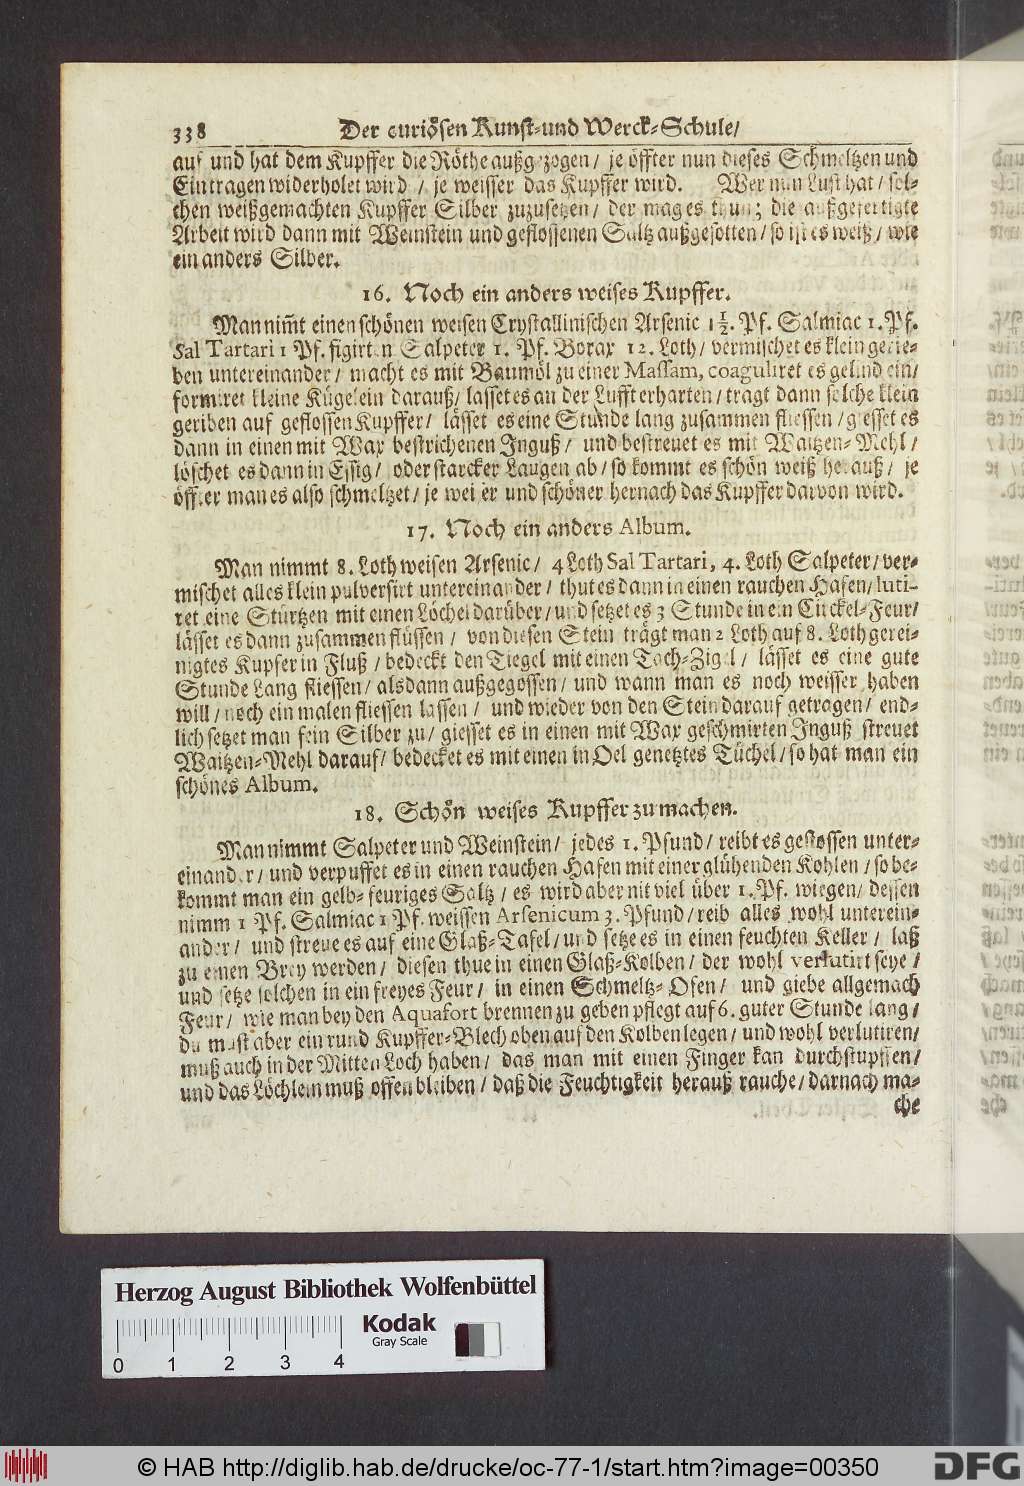 338 Der curiösen Kunst-und Werck-Schule/
auf und hat dem Kupffer die Röthe außgezogen/ je öffter nun dieses Schmeltzen und
Eintragen widerholet wird / je weisser das Kupffer wird. Wer nun Lust hat/ sol-
chen weißgemachten Kupffer Silber zuzusetzen/ der mag es thun; die außgefertigte
Arbeit wird dann mit Weinstein und geflossenen Saltz außgesotten/ so ist es weiß/ wie
ein anders Silber.
16. Noch ein anders weises Kupffer.
Man nim̃t einen schönen weisen Crystallinischen Arsenic 1½. Pf. Salmiac 1. Pf.
Sal Tartari 1 Pf. figirten Salpeter 1. Pf. Borax 12. Loth/ vermischet es klein gerie-
ben untereinander/ macht es mit Baumöl zu einer Massam, coaguliret es gelind ein/
formiret kleine Kügelein darauß/ lasset es an der Lufft erharten/ tragt dann solche klein
geriben auf geflossen Kupffer/ lässet es eine Stunde lang zusammen fliessen/ giesset es
dann in einen mit Wax bestrichenen Inguß/ und bestreuet es mit Waitzen-Mehl/
löschet es dann in Essig/ oder starcker Laugen ab/ so kommt es schön weiß herauß/ je
öffter man es also schmeltzet/ je weisser und schöner hernach das Kupffer darvon wird.
17. Noch ein anders Album.
Man nimmt 8. Loth weisen Arsenic/ 4 Loth Sal Tartari, 4. Loth Salpeter/ ver-
mischet alles klein pulversirt untereinander/ thut es dann in einen rauchen Hafen/ luti-
ret eine Stürtzen mit einen Löchel darüber/ und setzet es 3 Stunde in ein Circkel-Feur/
lässet es dann zusammen flüssen/ von diesen Stein trägt man 2 Loth auf 8. Loth gerei-
nigtes Kupfer in Fluß/ bedeckt den Tiegel mit einen Tach-Zigel/ lässet es eine gute
Stunde Lang fliessen/ alsdann außgegossen/ und wann man es noch weisser haben
will/ noch ein malen fliessen lassen/ und wieder von den Stein darauf getragen/ end-
lich setzet man fein Silber zu/ giesset es in einen mit Wax geschmirten Inguß streuet
Waitzen-Mehl darauf/ bedecket es mit einen in Oel genetztes Tüchel/ so hat man ein
schönes Album.
18. Schön weises Kupffer zu machen.
Man nimmt Salpeter und Weinstein/ jedes 1. Pfund/ reibt es gestossen unter-
einander/ und verpuffet es in einen rauchen Hafen mit einer glühenden Kohlen/ so be-
kommt man ein gelb-feuriges Saltz/ es wird aber nit viel über 1. Pf. wiegen/ dessen
nimm 1 Pf. Salmiac 1 Pf. weissen Arsenicum 3. Pfund/ reib alles wohl unterein-
ander/ und streue es auf eine Glaß-Tafel/ und setze es in einen feuchten Keller/ laß
zu einen Brey werden/ diesen thue in einen Glaß-Kolben/ der wohl verlutirt seye/
und setze solchen in ein freyes Feur/ in einen Schmeltz-Ofen/ und giebe allgemach
Feur/ wie man bey den Aquafort brennen zu geben pflegt auf 6. guter Stunde lang/
du must aber ein rund Kupffer-Blech oben auf den Kolben legen/ und wohl verlutiren/
muß auch in der Mitten Loch haben/ das man mit einen Finger kan durchstupffen/
und das Löchlein muß offen bleiben/ daß die Feuchtigkeit herauß rauche/ darnach ma-
che
Herzog August Bibliothek Wolfenbüttel
Kodak
Gray Scale
0 1 2 3 4
© HAB http://diglib.hab.de/drucke/oc-77-1/start.htm?image=00350
DFG